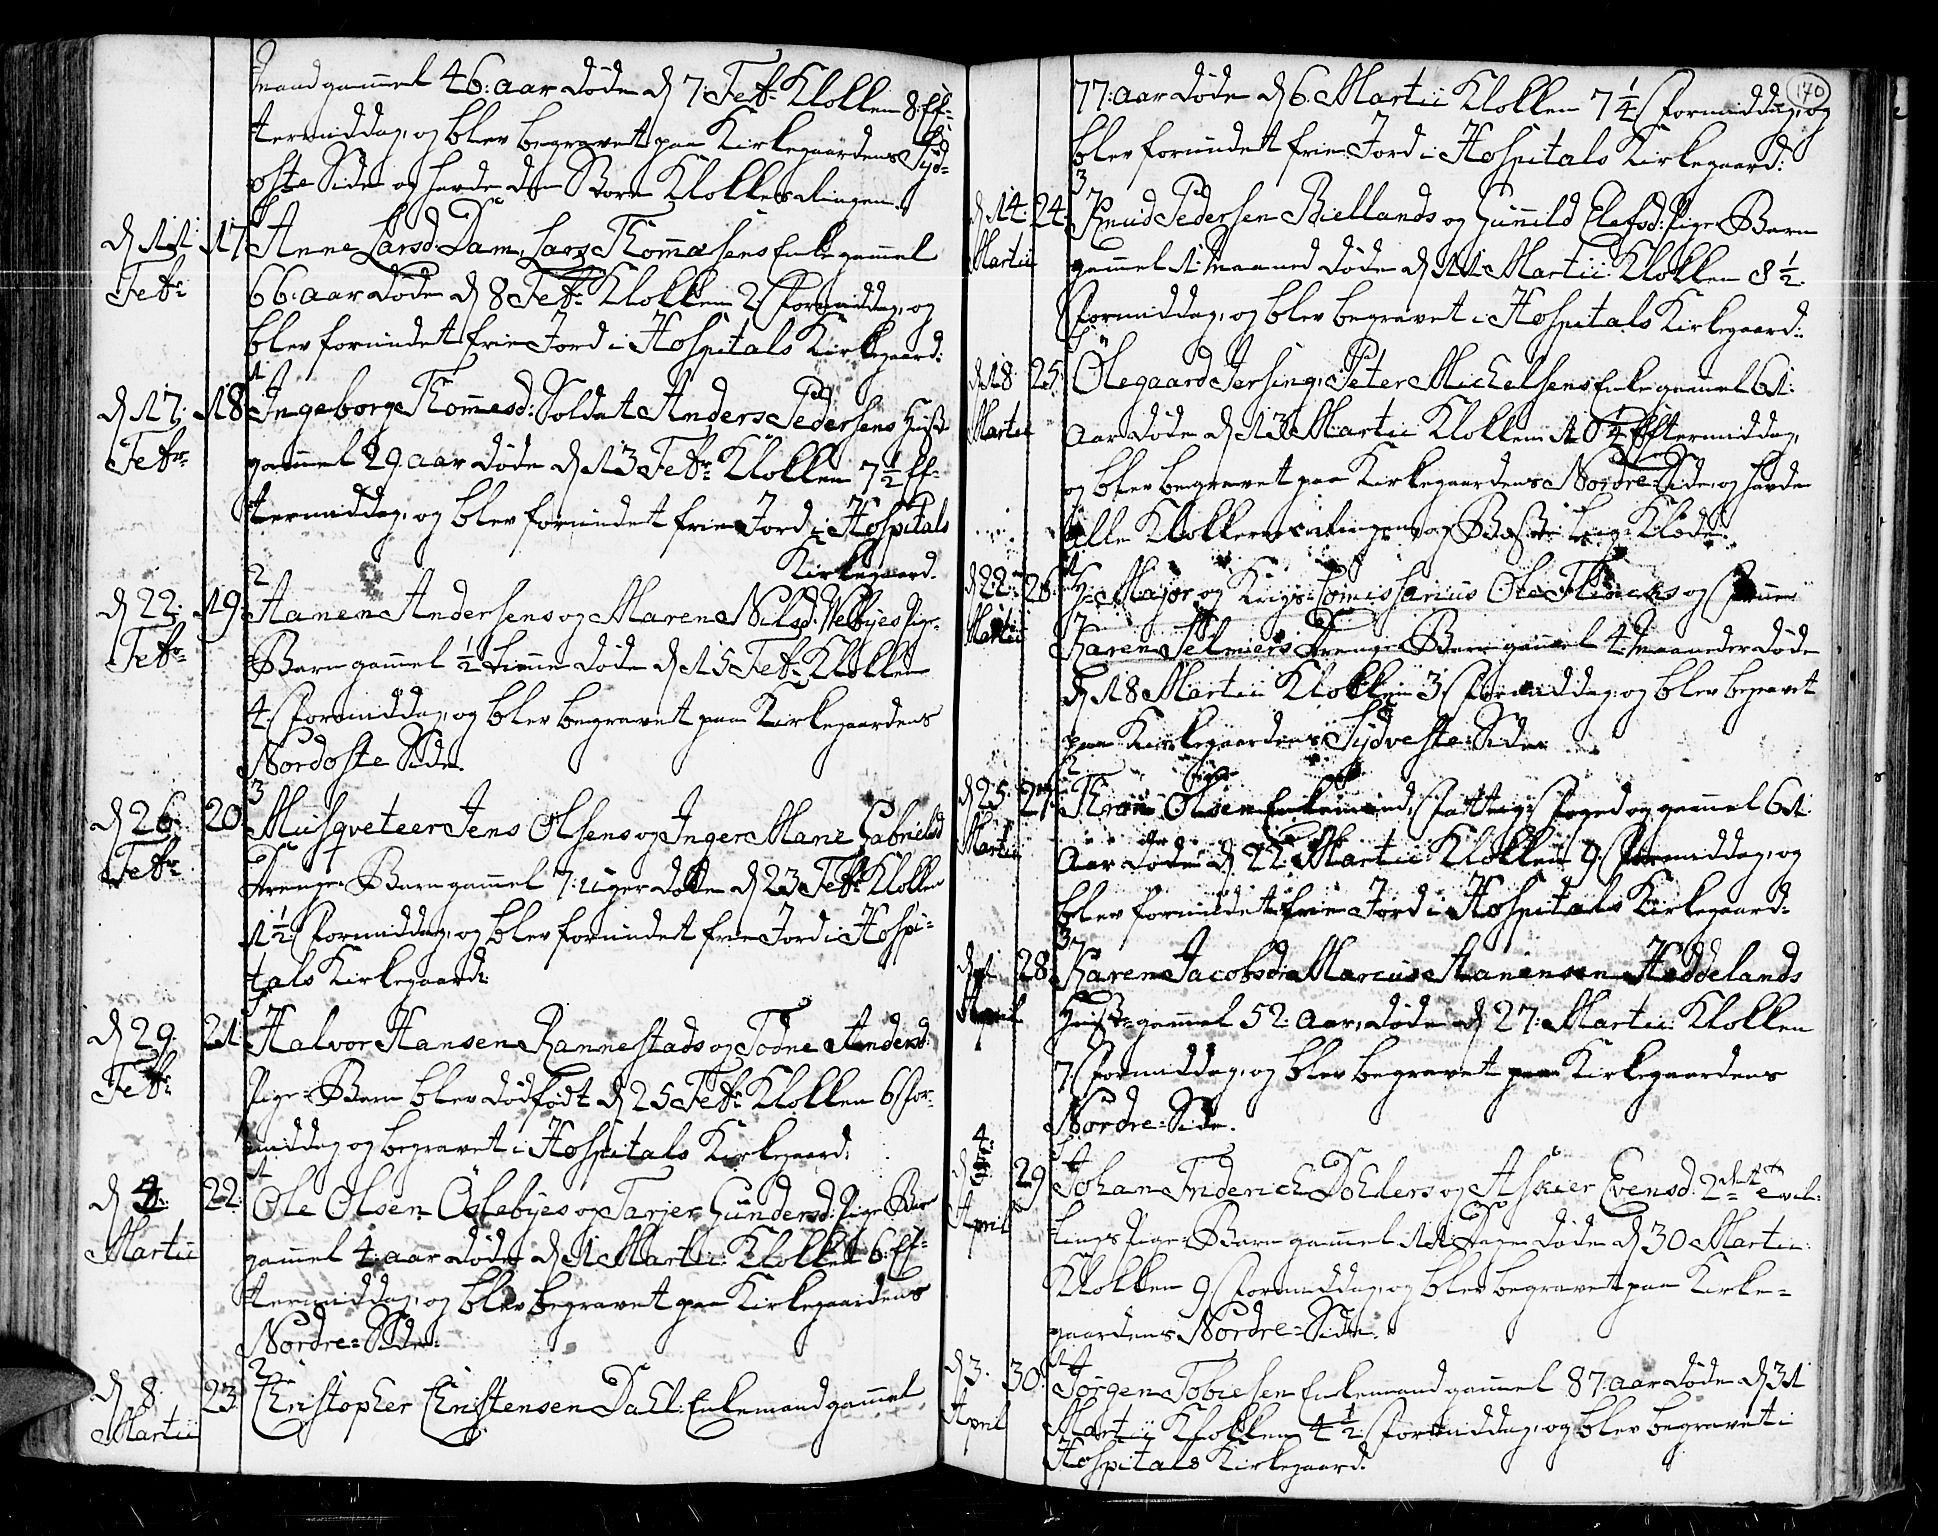 mand gam̅el 46: aar døde d 7: Febr: Klokken 8: Ef-
termiddag, og blev begravet paa Kirkegaardens Syd-
oste Side og havde den Store Klokkes Ringen.
d 11: 17 Anne Larsd: Dam, Lars Thom̅æsens Enke gam̅el
Febr: 66: aar døde d 8 Febr: Klokken 2: Formiddag, og
blev forundet frie Jord i Hospitals Kirkegaard:
1
d 17: 18 Ingeborg Thom̅esd: Soldat Anders Pedersens Hustr
Febr: gam̅el 29 aar døde d 13 Febr: Klokken 7½ Ef-
termiddag, og blev forundet frie Jord i Hospitals
Kirkegaard.
2
d 22: 19. Hanen Andersens og Maren Nilsd: Webyes Pige-
Febr: Barn gam̅el ½ time døde d 15 Febr: Klokken
4: Formiddag, og blev begravet paa Kirkegaardens
Nordoste Side.
3
d 26: 20. Musqveteer Jens Olsens og Inger Marie Gabrielsd
Febr: Drenge-Barn gam̅el 7: uger døde d 23 Febr: Klokken
1½: Formiddag, og blev forundet frie Jord i Hospi-
tals Kirkegaard:
d 29: 21: Halvor Hansen Rannestads og Todne Andersd:
Febr: Pige-Barn blev dødfødt d 25 Febr: Klokken 6 For-
middag og begravet i Hospitals Kirkegaard:
1
d 4: 22: Ole Olsen Oslebyes og Tarjer Gundersd: Pige-Barn
Martii gam̅el 4: aar døde d 1 Martii: Klokken 6: Ef-
termiddag, og blev begravet paa Kirkegaardens
Nordre-Side.
2
d 8 23. Christopher Christensen Dahl: Enkemand gam̅el
Martii
170
77: aar døde d 6: Martii Klokken 7¼ Formiddag, og
blev forundet frie Jord i Hospitals Kirkegaard:
3
d 14: 24: Knud Pedersen Biellands og Gunild Elefsd: Pige-Barn
Martii gam̅el 1: maaned døde d 11 Martii: Klokken 8½
Formiddag, og blev begravet i Hospitals Kirkegaard:
d 18: 25: Ölegaard Jersing, Peter Michelsens Enke gam̅el 61:
Martii Aar døde d 13: Martii Klokken 10¼ Eftermiddag,
og blev begravet paa Kirkegaardens Nordre-Side, og havde
alle Klokkernes Ringen og Beste Lig-Klæde.
d 22: 26: Hr: Major og Krigs-Com̅issarius Ole og Frue
Martii Karen Selmers Drenge-Barn gam̅el 4: maaneder døde
d 18 Martii Klokken 3 Formiddag, og blev begravet
paa Kirkegaardens Sydveste-Side
2
d 25: 27: Olsen Enkemand, Fattig- Foged og gam̅el 61
Martii Aar døde d 22: Martii Klokken 9: Formiddag, og
blev forundet frie Jord i Hospitals Kirkegaard-
3
28 Karen Jacobsd: Marcus Hanensen Høddelands
April Hustr: gam̅el 52: aar, døde d 27: Martii: Klokken
7 Formiddag, og blev begravet paa Kirkegaardens
Nordre-Side.
4:
d 29 Johan Friderich Dohlers og Evensd: 2det
April tings Pige-Barn gam̅el 11: Dage døde d 30 Martii:
Klokken 9 Formiddag, og blev begravet paa Kirke-
gaardens Nordre-Side.
1
d 3. 30. Jørgen Tobiesen Enkemand gam̅el 87: aar døde d 31
April Martii Klokken 4½: Formiddag, og blev begravet i
Hospitals Kirkegaard.